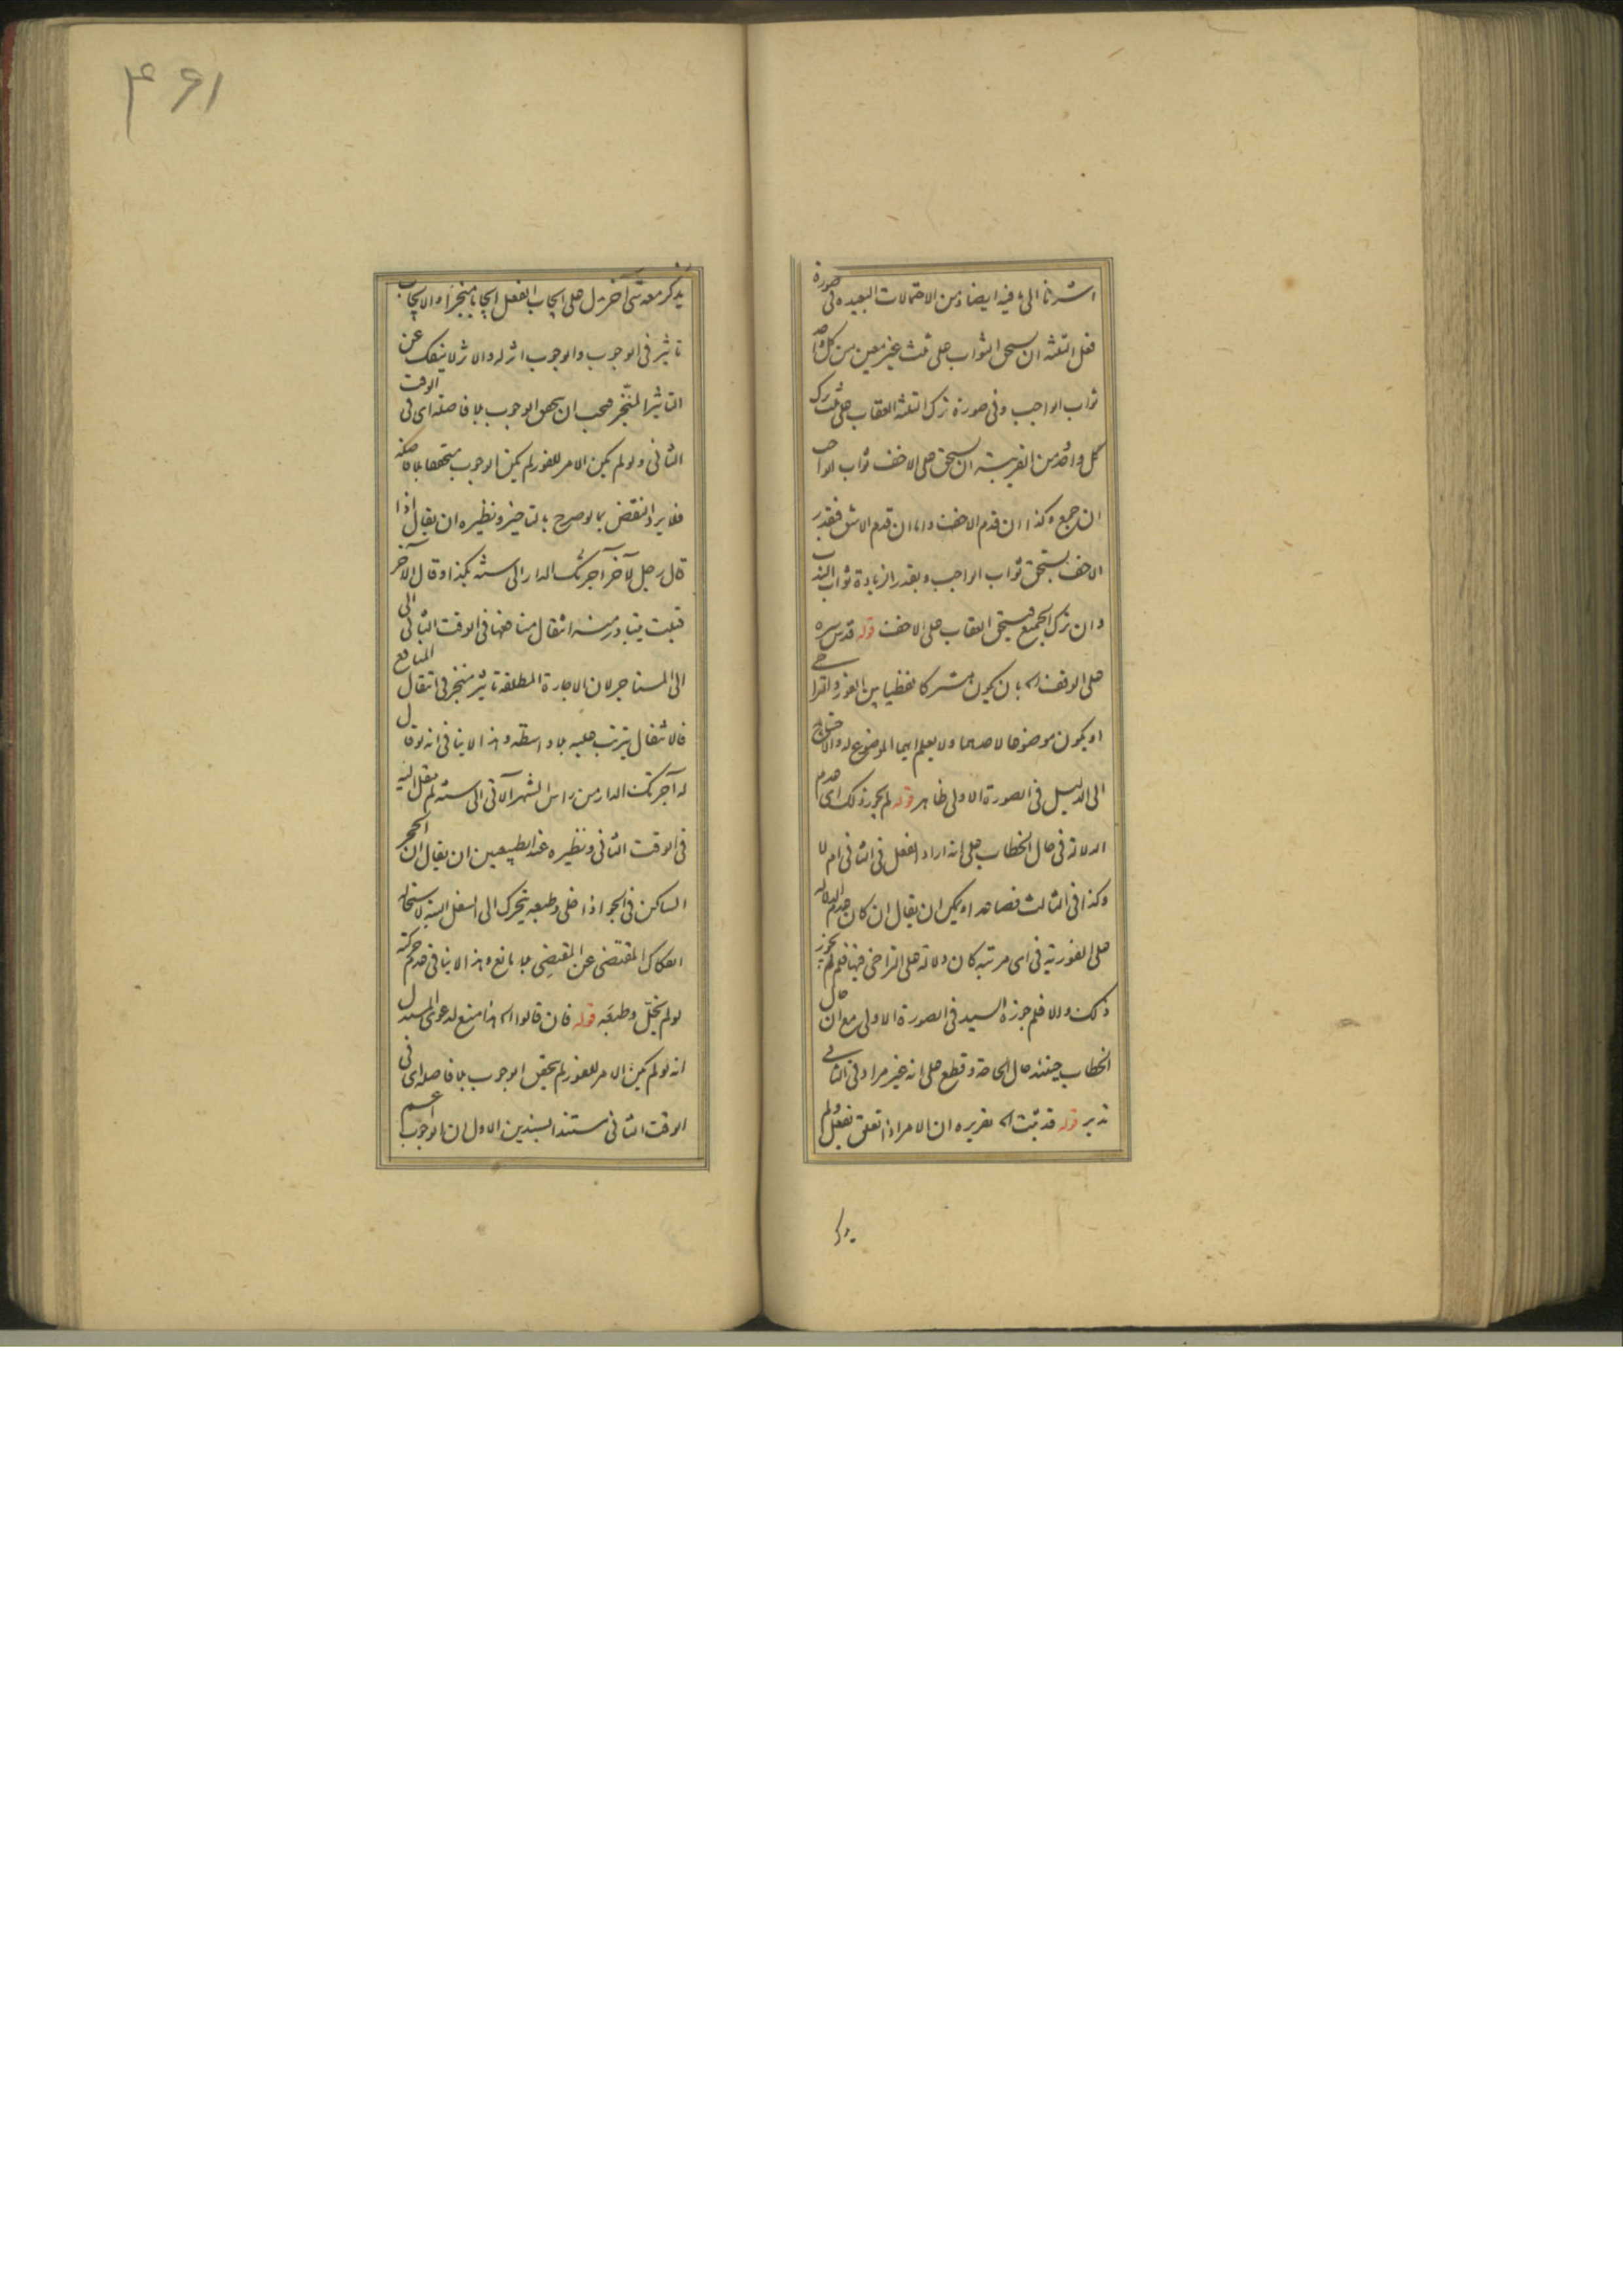 اشرنا الى ما فيه ايضا ومن الاحتمالات البعيدة فى صورة
فعل الثلثة ان يستحق الثواب على ثلث غير معين من كل واحد
ثواب الواجب وفى صورة ترك الثلثة العقاب على ثلث ترك
كل واحد من القريبة ان يستحق على الاخف ثواب الواجب
ان جمع وكذا ان قدم الاخف واما ان قدم الاشق فبقدر
الاخف يستحق ثواب الواجب وبقدر الزيادة ثواب الندب
وان ترك الجميع فيستحق العقاب على الاخف قوله قدس سره
على الوقف اه بان يكون مشتركا لفظيا بين الفور والتراخى
او يكون موضوعا لاحدهما ولا يعلم ايهما الموضوع له والاحتياج
الى الدليل فى الصورة الاولى ظاهر قوله لم يجوز ذلك اى عدم
الدلالة فى حال الخطاب على انه اراد الفعل فى الثانى ام لا
وكذا فى الثالث فصاعدا ويمكن ان يقال ان كان عدم الدلالة
على الفورية فى اى مرتبة كان دلالة على التراخى فيها فلم لم يجوز
ذلك والا فلم جوزه السيد فى الصورة الاولى مع ان حال
الخطاب حينئذ حال الحاجة وقطع على انه غير مراد فى الثانى
تدبر قوله قد ثبت اه تقريره ان الامر اذا تعلق بفعل ولم
يذكر
۴۶۱
يذكر معه شئ آخر دل على ايجاب الفعل ايجابا منجزا والايجاب
تاثير فى الوجوب والوجوب اثر له والاثر لا ينفك عن
التاثير المنجز فيجب ان يتحقق الوجوب بلا فاصلة اى فى الوقت
الثانى ولو لم يكن الامر للفور لم يكن الوجوب متحققا بلا فاصلة
فلا يرد النقض بما لو صرح بالتاخير ونظيره ان يقال اذا
قال رجل لآخر آجرتك الدار الى سنة بكذا وقال الآخر
قبلت يتبادر منه انتقال منافعها فى الوقت الثانى الى
الى المستاجر لان الاجارة المطلقة تاثير منجز فى انتقال المنافع
فالانتقال يترتب عليه بلا واسطة وهذا لا ينافى انه لو قال
له آجرتك الدار من راس الشهر الآتى الى سنة لم ينتقل اليه
فى الوقت الثانى ونظيره عند الطبيعيين ان يقال ان الحجر
الساكن فى الجو اذا خلى وطبعه يتحرك الى اسفل البتة لاستحالة
انفكاك المقتضى عن المقتضى بلا مانع وهذا لا ينافى عدم حركته
لو لم يخل وطبعه قوله فان قالوا اه هذا منع لدعوى المستدل
انه لو لم يكن الامر للفور لم يتحقق الوجوب بلا فاصلة اى فى
الوقت الثانى مستندا بسندين الاول ان الوجوب اعم